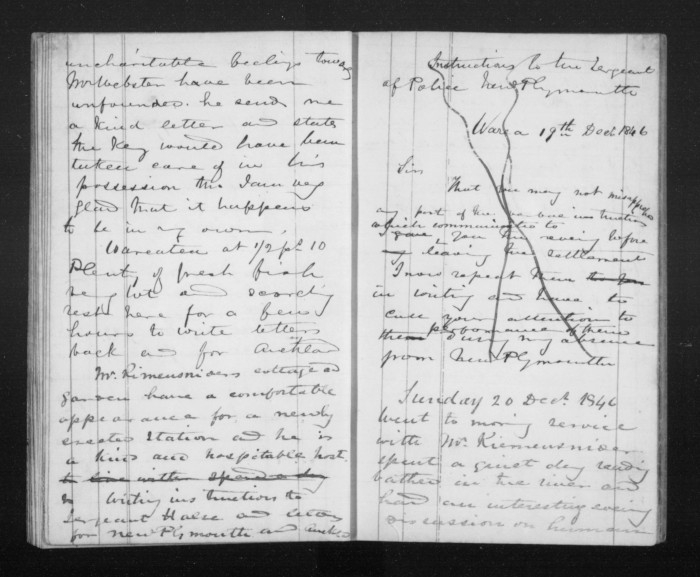 uncharitable feelings towards
Mr Webster have been
unfounded. he sends me
a kind letter and states
the Key would have been
taken care of in his
possession tho I am very
glad that it happens
to be in my own,
Warea at 1/2 pt 10
Plenty of fresh fish
very hot and scorching
rest here for a few
hours to write letters
back and for Auckland
Mr. Riemensniders cottage and
garden have a comfortable
appearance for a newly
erected Station and he is
a kind and hospitable host.
writing instructions to
Sergeant Halse and letters
for New Plymouth and Auckld
Instructions to the Sergeant
of Police New Plymouth
Warea 19th Decr 1846
Sir
That you may not misapprehend
any part of the instructions
which communicated to
I gave you this evening before
my leaving the settlement
I now repeat them to you
in writing and have to
call your attention to
the performance of them
during my absence
from New Plymouth
Sunday 20 Decr. 1846
Went to morning service
with Mr. Riemensnider
spent a quiet day reading
bathed in the river and
had an interesting evening
discussion on human